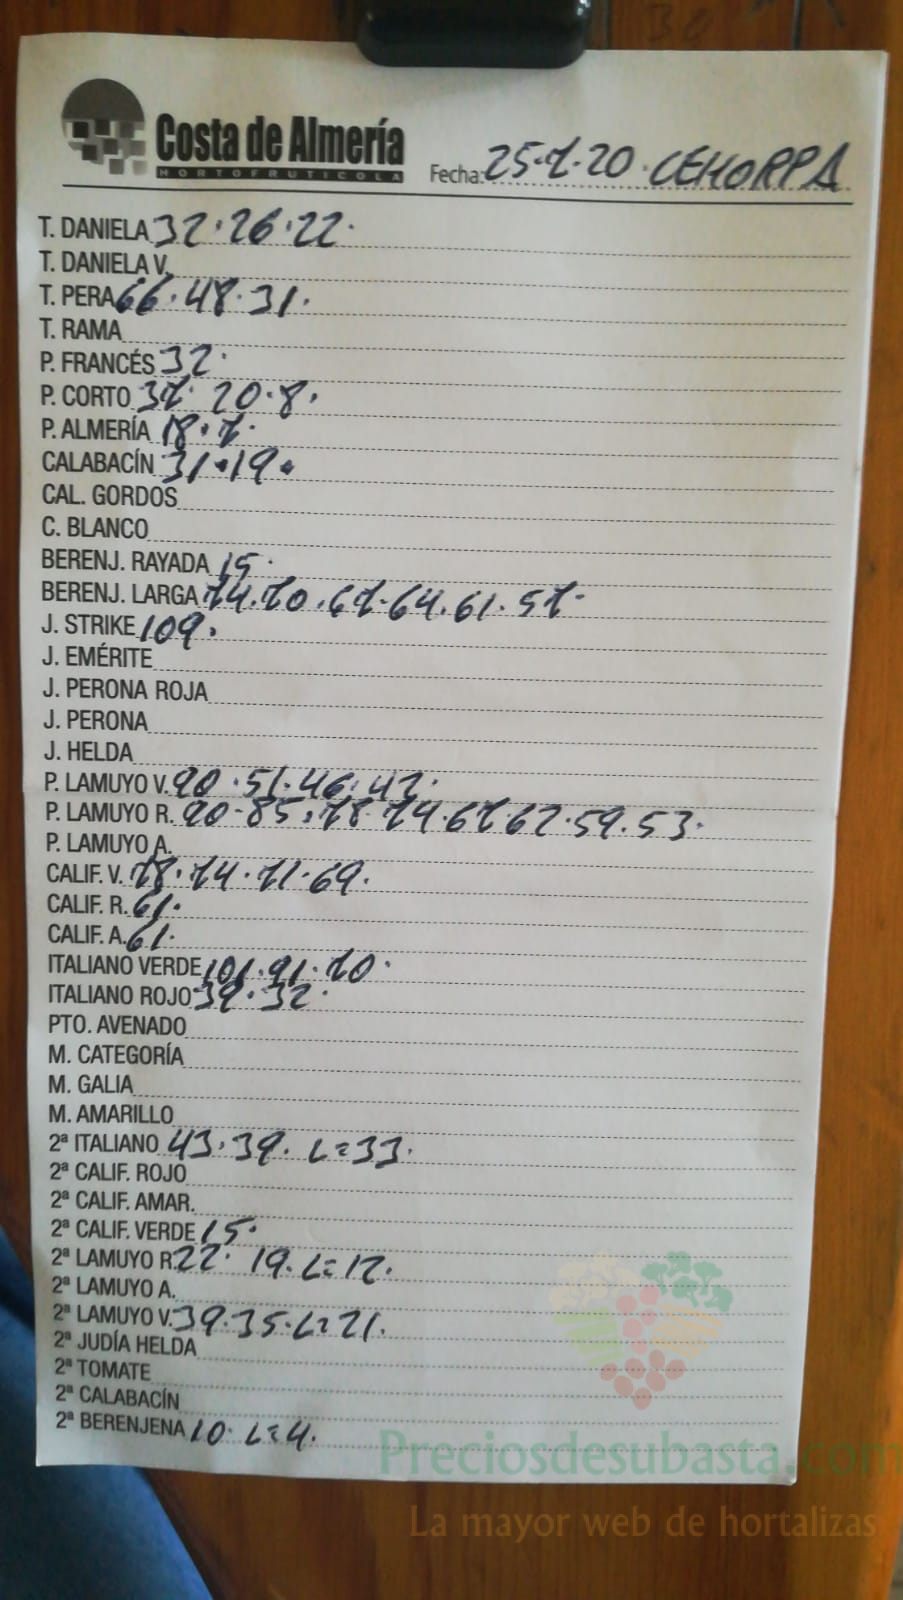 Costa de Almería
HORTOFRUTICOLA
Fecha: 25·7·20 · CEHORPA
T. DANIELA 32·26·22·
T. DANIELA V.
T. PERA 66·48·31·
T. RAMA
P. FRANCÉS 32·
P. CORTO 37· 20·8·
P. ALMERÍA 18·7·
CALABACÍN 31·19·
CAL. GORDOS
C. BLANCO
BERENJ. RAYADA 15·
BERENJ. LARGA 74·70·67·64·61·57·
J. STRIKE 109·
J. EMÉRITE
J. PERONA ROJA
J. PERONA
J. HELDA
P. LAMUYO V. 90·51·46·42·
P. LAMUYO R. 90·85·78·74·67·62·59·53·
P. LAMUYO A.
CALIF. V. 78·74·71·69·
CALIF. R. 61·
CALIF. A. 61·
ITALIANO VERDE 101·91·70·
ITALIANO ROJO 39·32·
PTO. AVENADO
M. CATEGORÍA
M. GALIA
M. AMARILLO
2ª ITALIANO 43·39· L=33·
2ª CALIF. ROJO
2ª CALIF. AMAR.
2ª CALIF. VERDE 15·
2ª LAMUYO R. 22· 19· L=12·
2ª LAMUYO A.
2ª LAMUYO V. 39·35·L=21·
2ª JUDÍA HELDA
2ª TOMATE
2ª CALABACÍN
2ª BERENJENA 10· L=4·
Preciosdesubasta.com
La mayor web de hortalizas